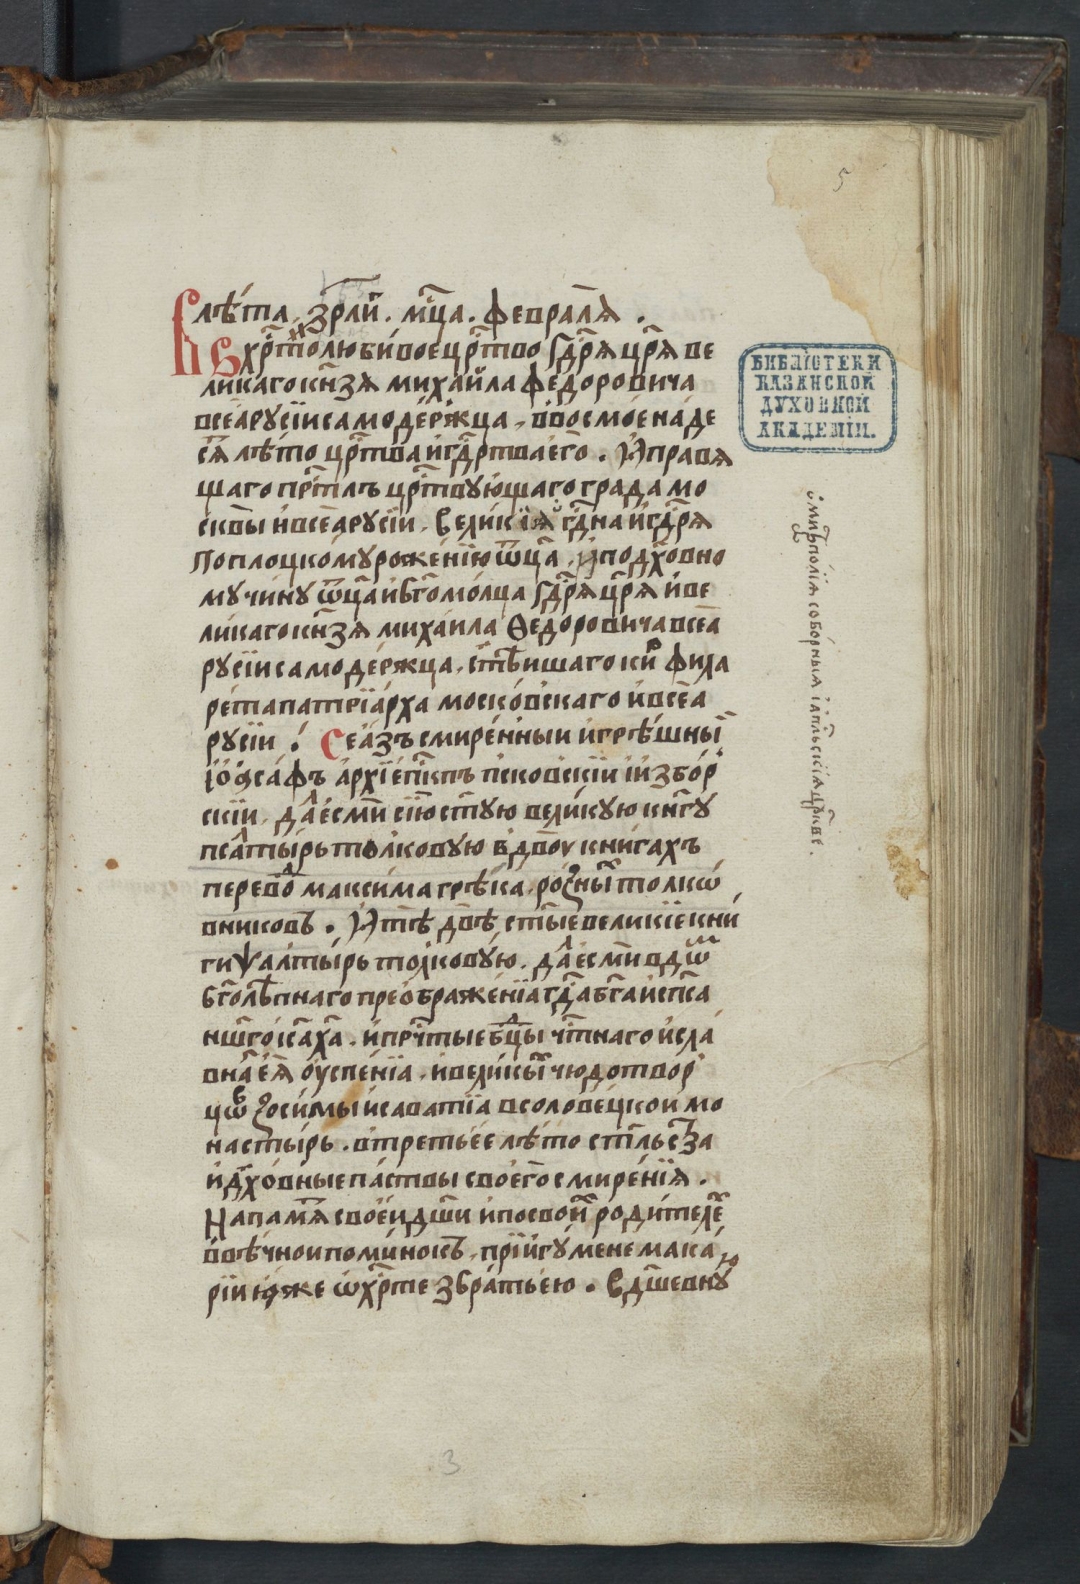 5
Влѣта. зрли. мца. февралѧ.
Вхрⷭтолюбивоецрⷭтво гдⷭрѧцрѧве
ликагокнзѧ михаила федоровича
всеарусиисамодержца, ввосмоенаде
сѧлѣто црⷭтваигдⷭртваего. Иправѧ
щаго прⷭтлъ црⷭтвующаго града мо
сквы ивсеарусіи. великіѧ гдⷭнаигдⷭрѧ
поплоцкомурожениюѿца, иподхⷪвно
мучинуѿцаибгомолца гдⷭрѧцрѧ иве
ликагокнзѧ михаила Ѳедоровичавсеа
русиисамодержца, стⷧѣишагокиⷬ фила
ретапатриарха московскаго ивсеа
русіи. Сеазъсмиренныи игрѣшныⁱ
іѻасафъ архіепⷭкпъ псковскіи иизбоⷬ
скіи, даⷧесми сіюстую великую книгу
псаⷧтырьтолковую вдвою книгахъ
перевоⷣ максимагрѣка, розныⷯтолкѡ
вниковъ. Атѣ двѣ стыевеликиекни
гиѱалтырьтолковую. даⷧесмивдѡⷨ
бголѣпнагопреѡбражениѧгдⷭабгаиспⷭа
ншгоісⷭахⷭа. ипрчⷭтыебцⷣы чⷭтнагоисла
внаⷢеѧ оуспеніа. ивеликиⷯчюдотвоⷬ
цѡⷡ зосимыисаватіа всоловецкои мо
настырь. втретьеелѣто стⷭльсⷮва
идхⷪвныепаствы своегосмиреніѧ.
Напамѧⷮсвоеидши ипосвоиⷯ родителеⷯ
ввѣчноипоминокъ, приигуменемака
рииꙗже ѡхрⷭте збратьею. вдшевнуⷧю
БИБЛІОТЕКИ
КАЗАНСКОЙ
ДУХОВНОЙ
АКАДЕМІИ.
соборныꙗ іапⷭльскіѧцрⷦве
3